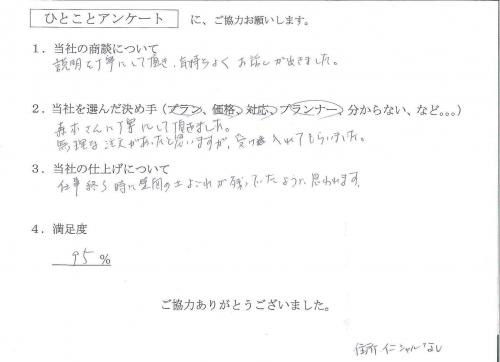 ひとことアンケート に、ご協力お願いします。
1．当社の商談について
説明も丁寧にして頂き、気持ちよくお話しが出来ました。
2．当社を選んだ決め手（プラン、価格、対応、プランナー、分からない、など。。。）
森本さんに丁寧にして頂きました。
無理な注文があったと思いますが、受け入れてもらいました。
3．当社の仕上げについて
仕事終る時に昼間の土よごれが残っていたように思われます。
4．満足度
95 %
ご協力ありがとうございました。
住所 イニシャルなし